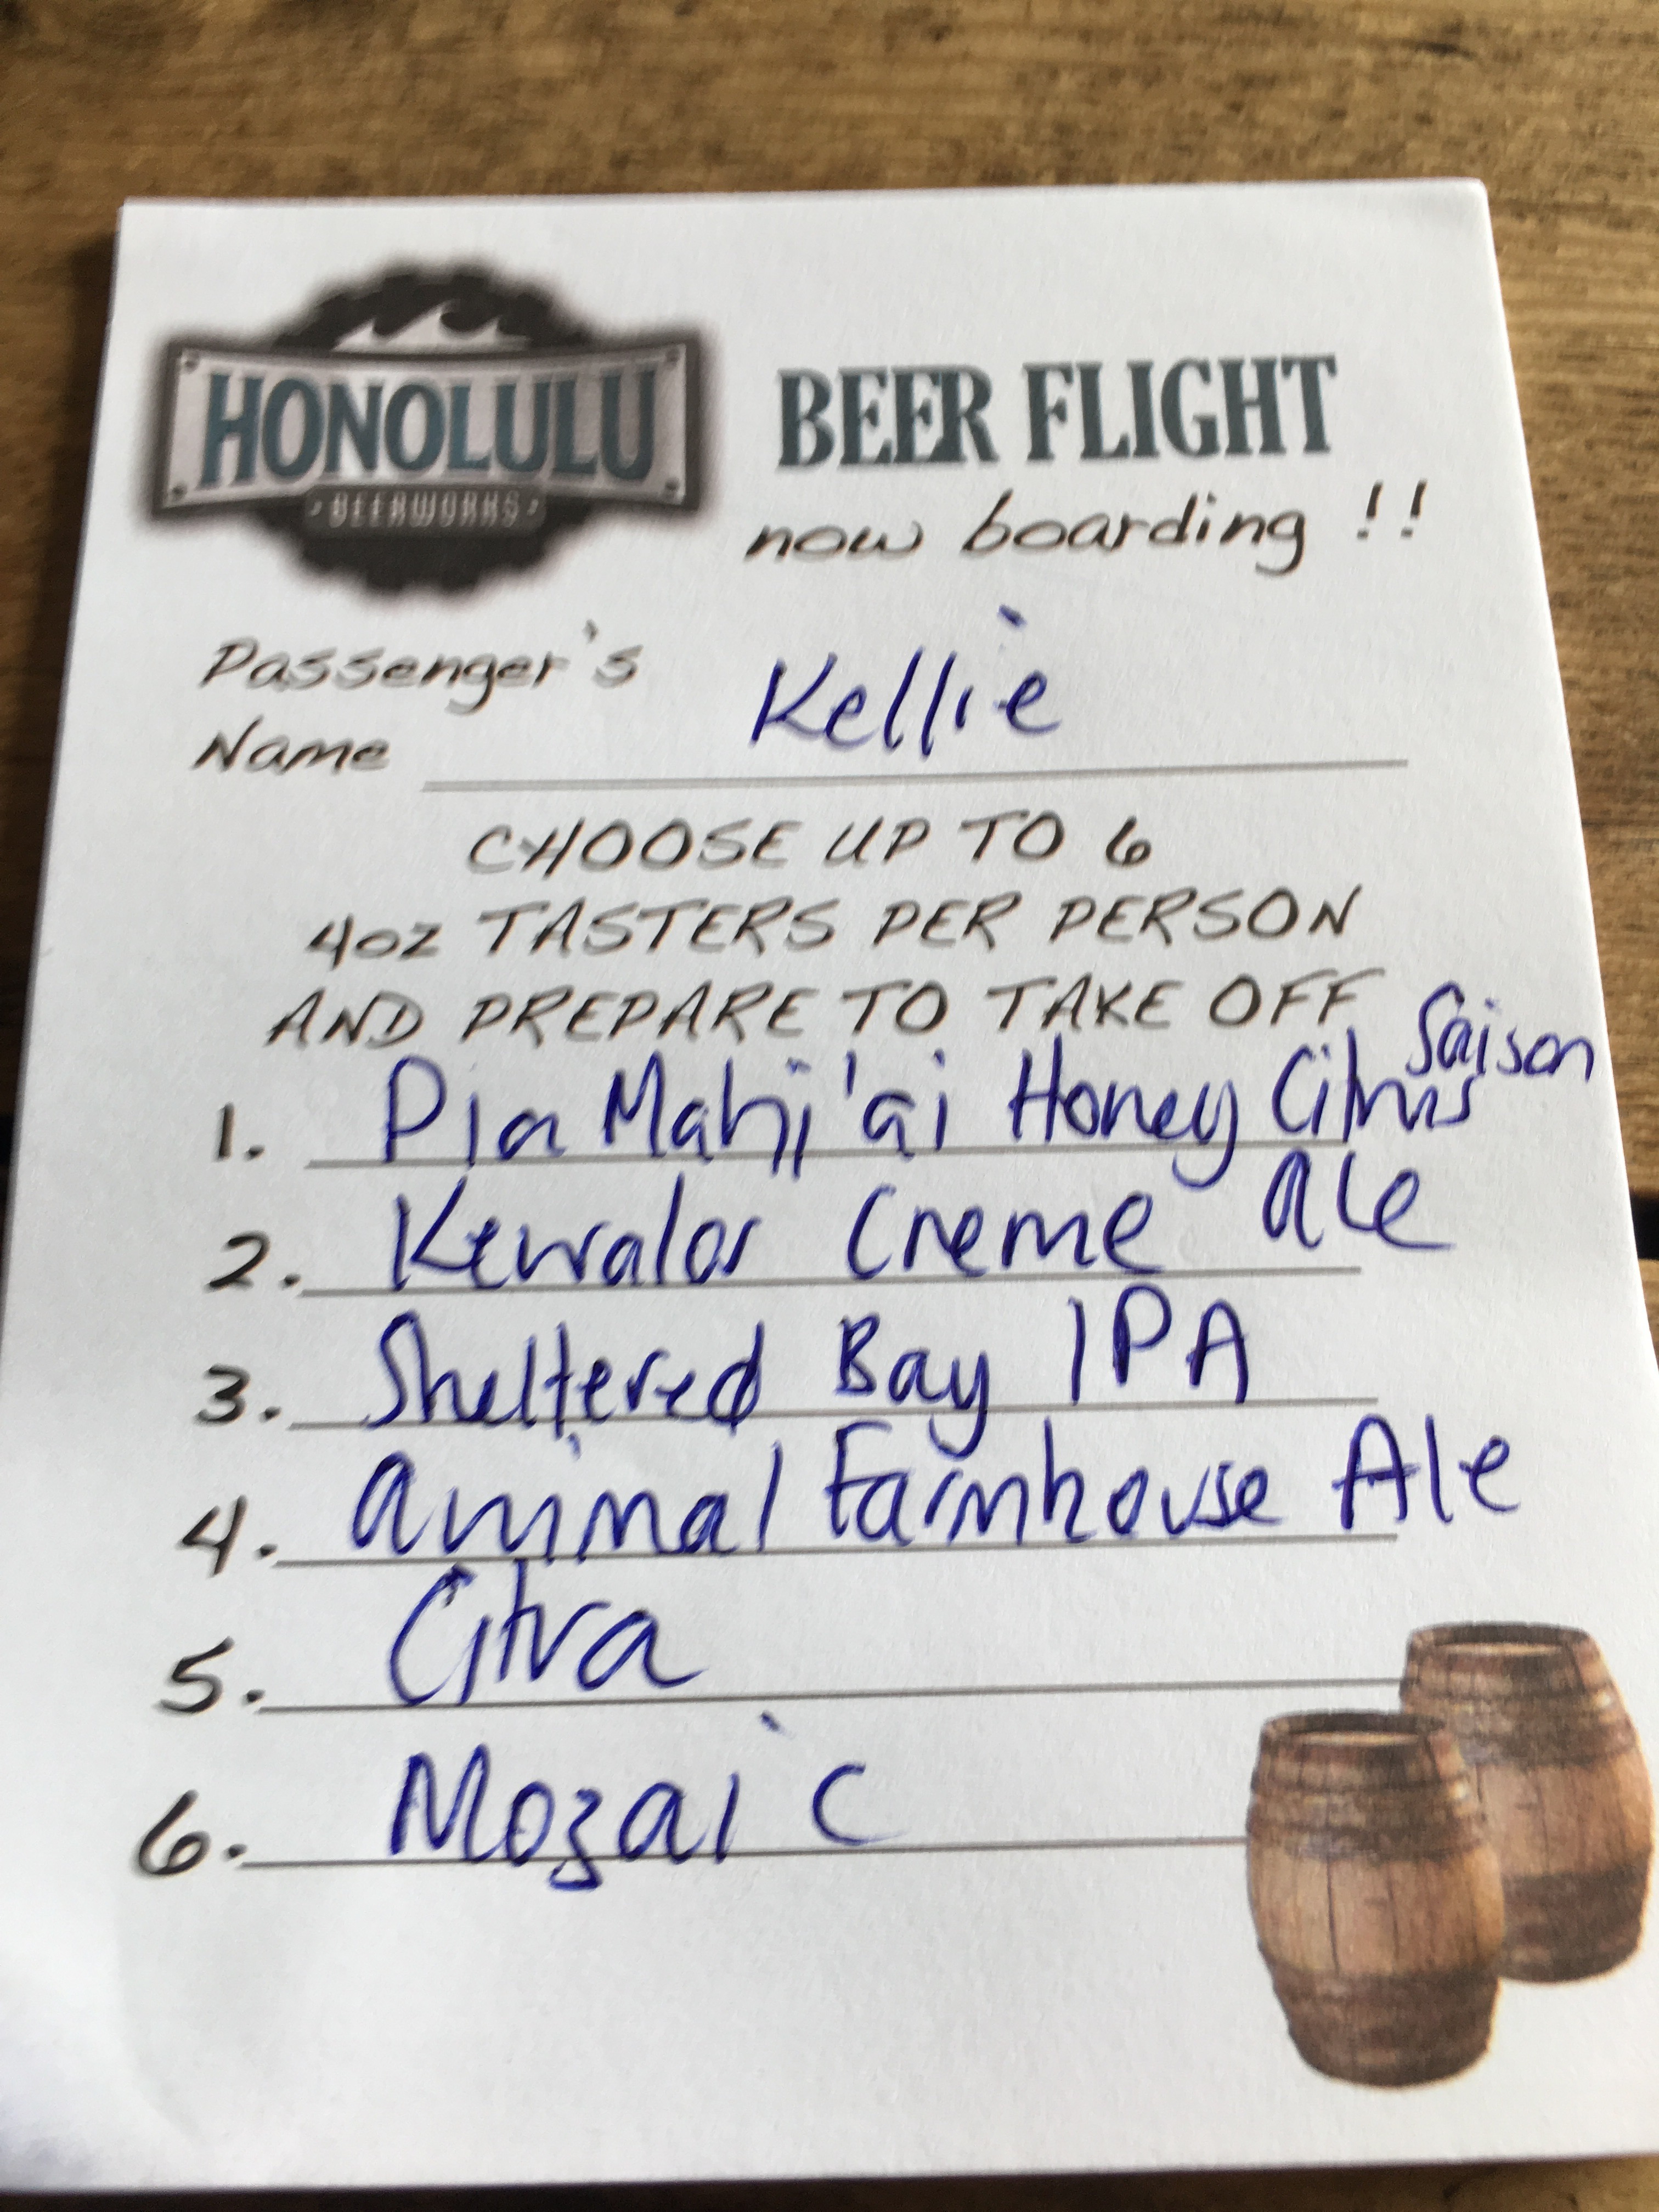 HONOLULU
·BEERWORKS·
BEER FLIGHT
now boarding !!
Passenger's
Name Kellie
CHOOSE UP TO 6
4oz TASTERS PER PERSON
AND PREPARE TO TAKE OFF
1. Pia Mahi'ai Honey Citrus Saison
2. Kewalos Creme ale
3. Sheltered Bay IPA
4. animal Farmhouse Ale
5. Citra
6. Mozaic